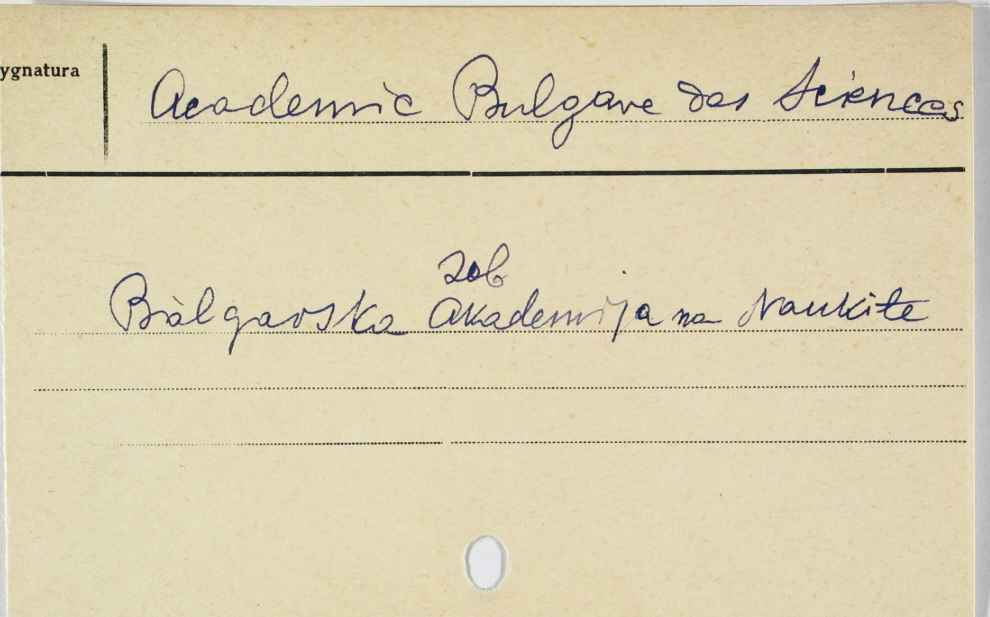 ygnatura
Academie Bulgare des Sciences
zob
Bàlgarska Akademija na Naukite